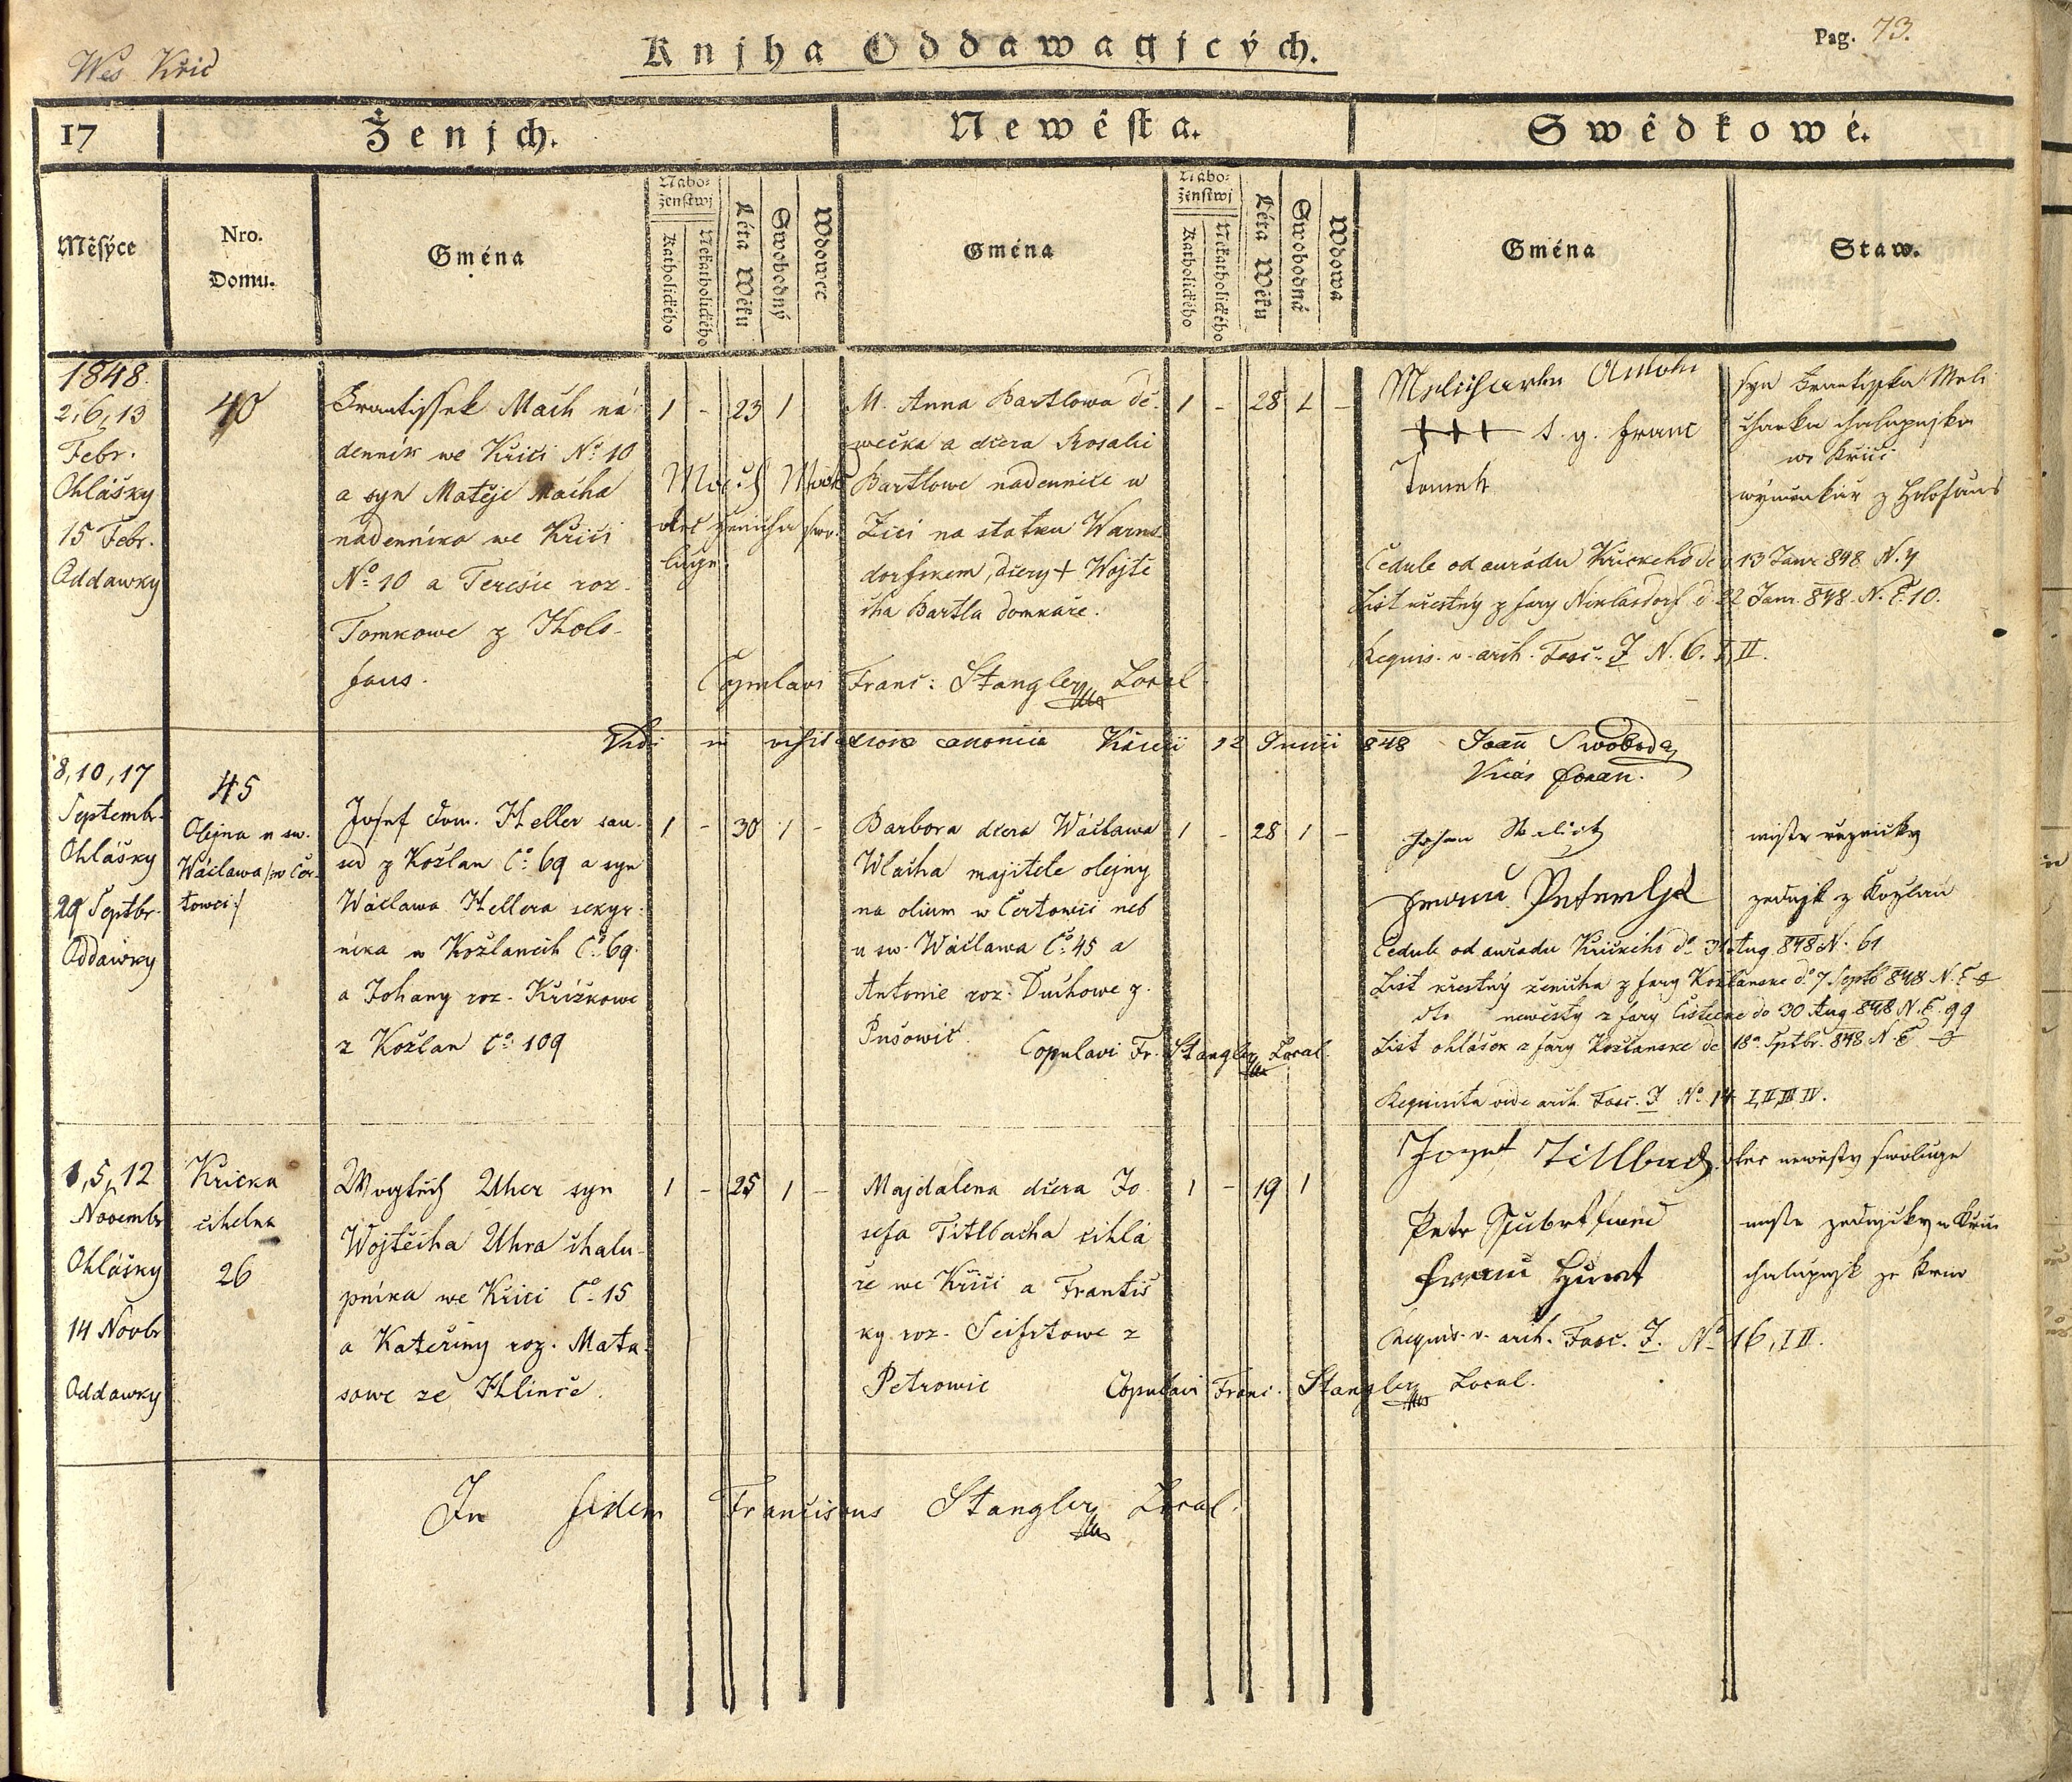 Wes Křič
Knjha Oddawagjcých.
Pag. 73.
17
Ženjch.
Newěsta.
Swědkowé.
Měsýce
Nro. Domu.
Gména
Nábo-
ženstwj
Katholického
Nekatholického
Léta Wěku
Swobodný
Wdowec
Gména
Nábo-
ženstwj
Katholického
Nekatholického
Léta Wěku
Swobodná
Wdowa
Gména
Staw.
1848.
2, 6, 13
Febr.
Ohlášky
15 Febr.
Oddawky
40
Frantissek Mach ná-
denník we Křiči No 10
a syn Matěje Macha
nadenníka we Křiči
No 10 a Teresie roz.
Tomkowe z Holo-
faus.
1 - 23 1
otec ženicha swo-
luge.
M. Anna Bartlowa dě-
wečka a dcera Rosalie
Bartlowe nadennice w
Zići na statku Warns-
dorfskem, dcery + Wojtě
cha Bartla domkaře.
1 - 28 1 -
+++ t. g. Franc
Tomek
syn Frantisska Meli
charka chalupnjka
we Křiči
wýminkář z Holofaus
Cedule od auřadu Křickeho do 13 Janr 848 N. 4
List křestný z fary Niklasdorf d. 22 Janr. 848. N. E. 10.
Requis. v. arch. Fasc. J N. 6. I, II.
Copulavi Franc: Stangler Local
Vidi in visitatione canonica Křičii 12 Junii 848 Joan Swoboda
Vicár foran.
8, 10, 17
Septembr.
Ohlášky
29 Septbr.
Oddawky
45
Olejna u sw.
Wáclawa /:w Čer-
towci:/
Josef Dom. Heller sau-
sed z Kožlan Čo: 69 a syn
Wáclawa Hellera sekyr-
níka w Kožlanech Čo: 69.
a Johany roz. Křížkowe
z Kožlan Čo: 109
1 - 30 1 -
Barbora dcera Wáclawa
Wlacha majitele olejny
na olium w Čertowci neb
u sw. Wáclawa Čo: 45 a
Antonie roz. Duchowe z
Pušowic.
1 - 28 1 -
mistr řeznicky
zednjk z Kožlan
Cedule od auřadu Křickeho do 31 Aug. 848 N. 61
List křestný ženicha z fary Kožlanske do 7 Septb 848 N. E
dto newěsty z fary Čistecke do 30 Aug. 848 N. E. 99
List ohlášok z fary Kožlanske do 18a Sptbr. 848 N. E
Requisita vide arch. Fasc. J No 14 I, II, III IV.
Copulavi Fr. Stangler Local.
1, 5, 12
Novembr
Ohlášky
14 Novbr
Oddawky
Křicka
cihelna
26
Wogtěch Uher syn
Wojtěcha Uhra chalu-
pníka we Křiči Čo 15
a Kateřiny roz. Mata-
sowe ze Hlince.
1 - 25 1 -
Majdalena dcera Jo-
sefa Titlbacha cihlá-
ře we Křiči a Františ
ky roz. Seifrtowe z
Petrowic
1 - 19 1
Jozef Titlbach otec newěsty swoluge
mistr zednicky w Křiči
chalupnjk ze Křiče
Requis. v. arch. Fasc. J. No 16, I II.
Copulavi Franc. Stangler Local.
In fidem Franciscus Stangler Local.